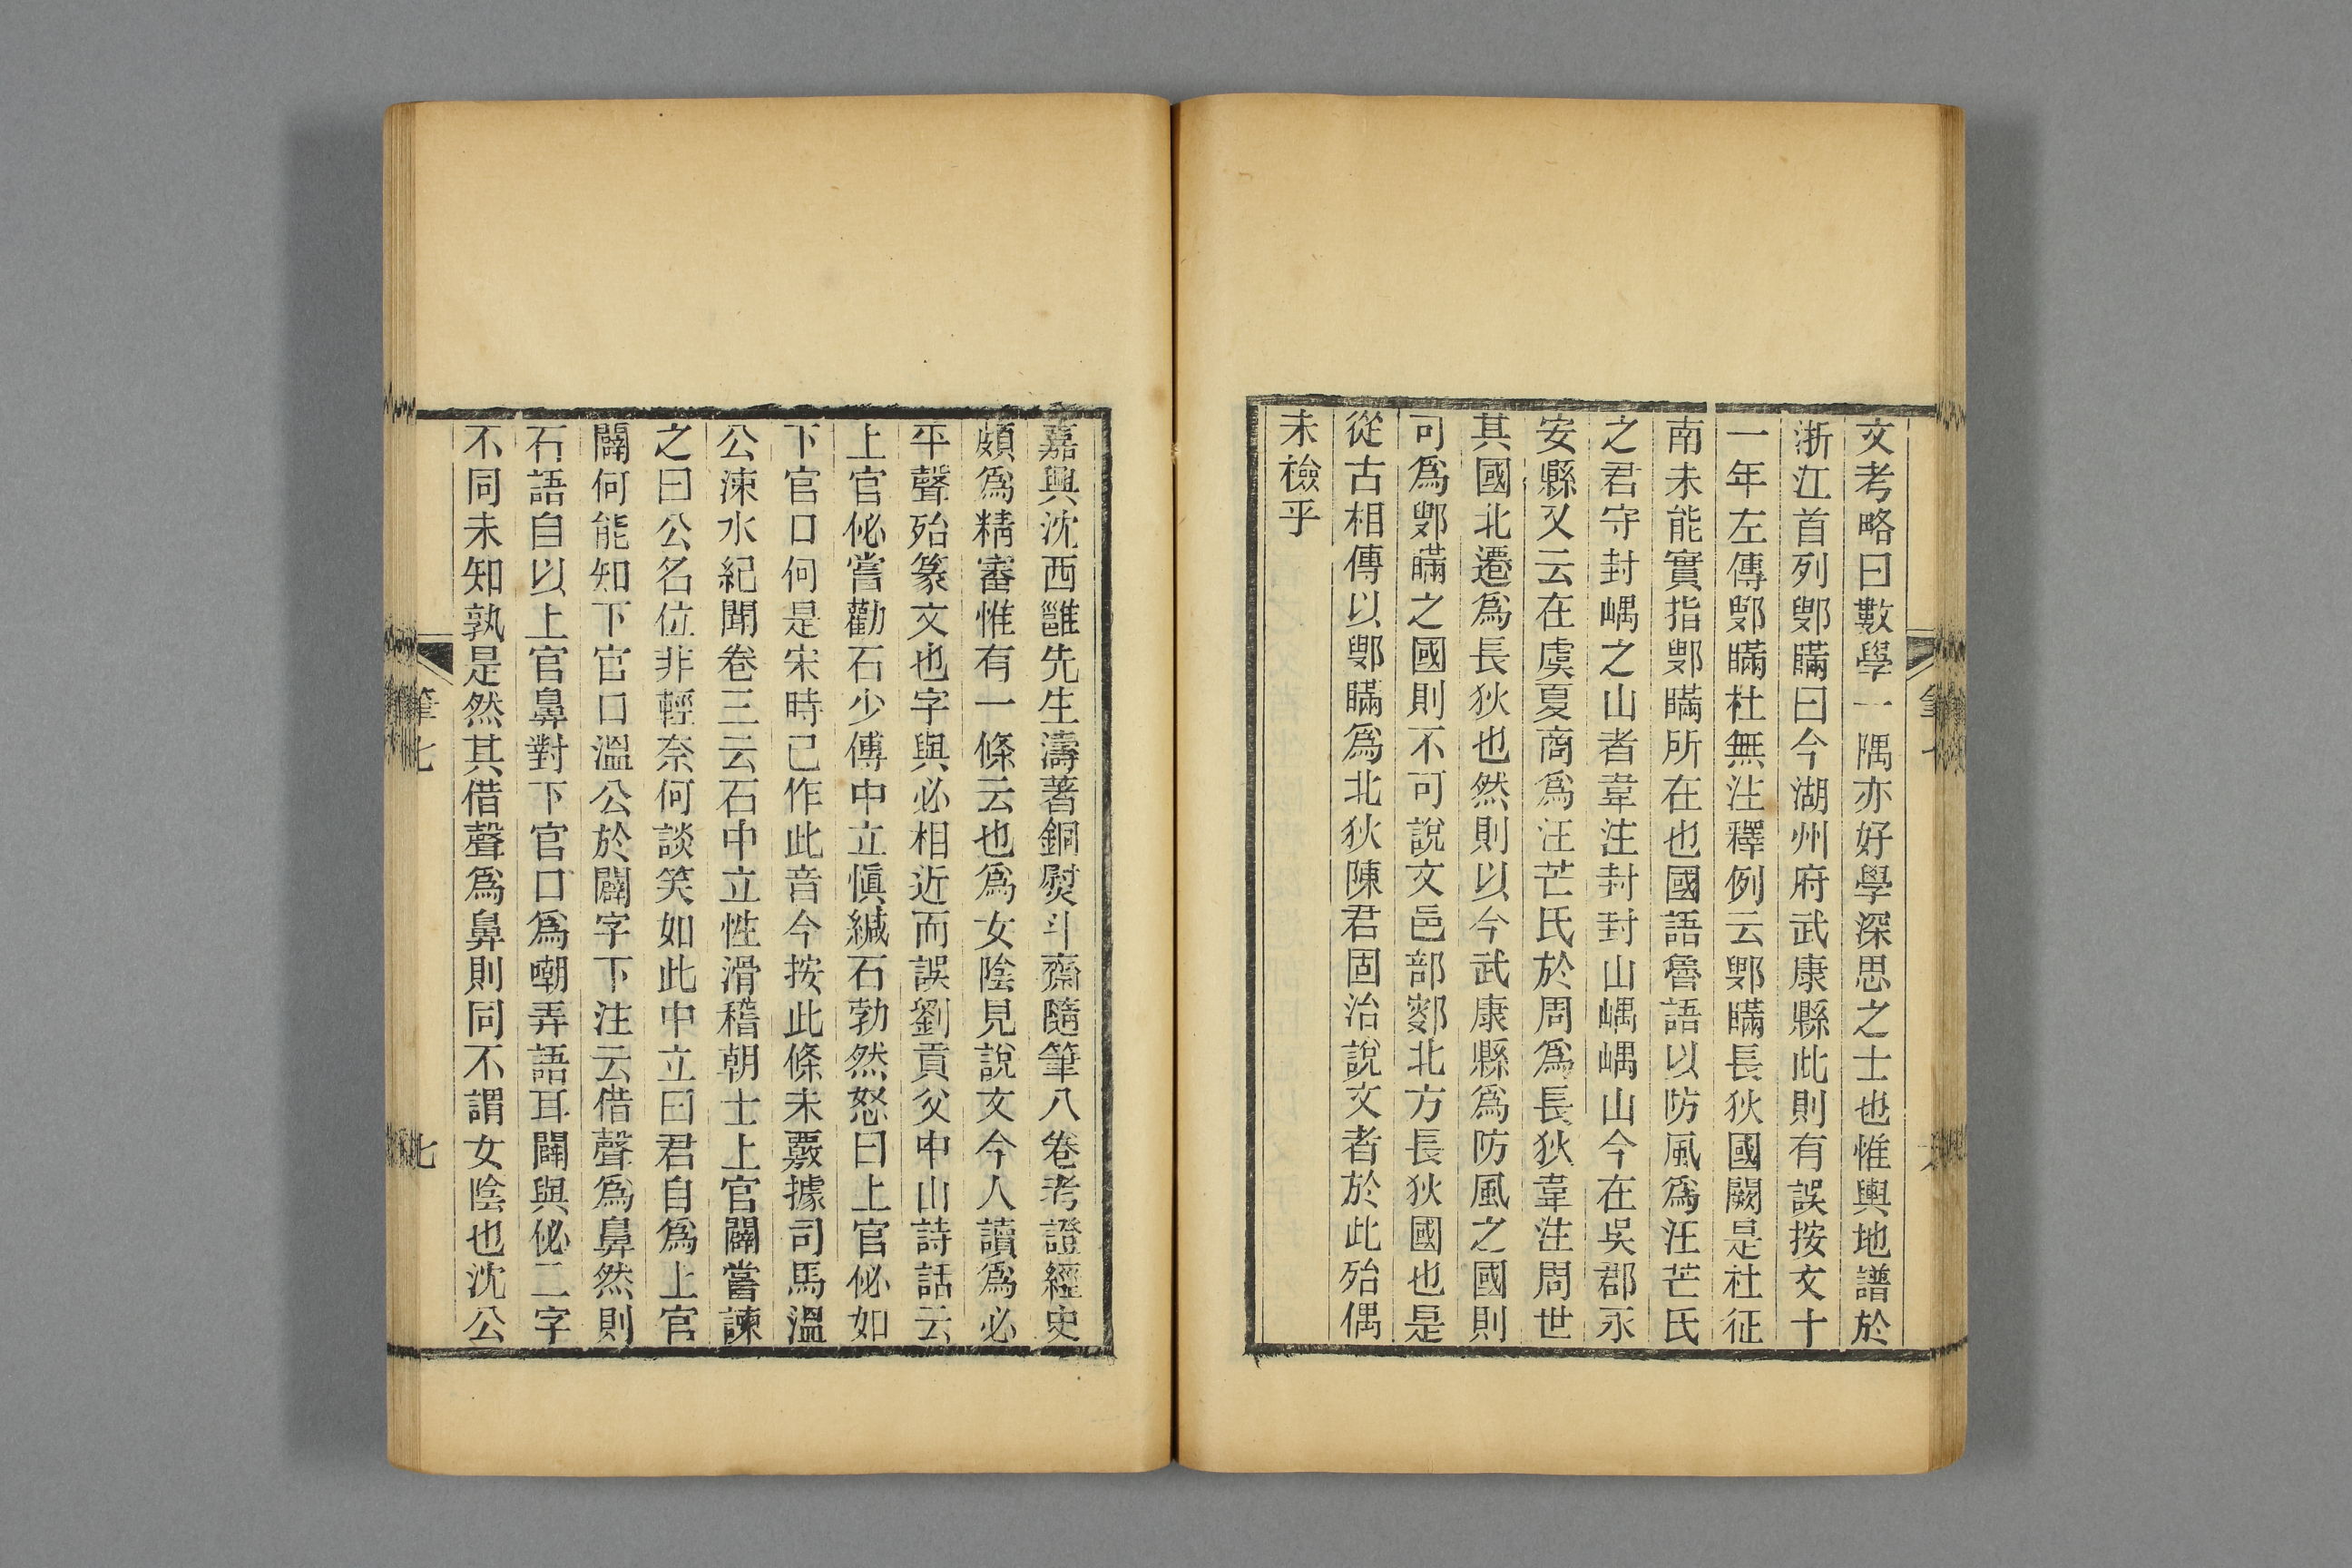 文考略曰數學一隅亦好學深思之士也惟輿地譜於
浙江首列鄋瞞曰今湖州府武康縣此則有誤按文十
一年左傳鄋瞞杜無注釋例云鄋瞞長狄國闕是杜征
南未能實指鄋瞞所在也國語魯語以防風爲汪芒氏
之君守封嵎之山者韋注封封山嵎嵎山今在吳郡永
安縣又云在虞夏商爲汪芒氏於周爲長狄韋注周世
其國北遷爲長狄也然則以今武康縣爲防風之國則
可爲鄋瞞之國則不可說文邑部鄋北方長狄國也是
從古相傳以鄋瞞爲北狄陳君固治說文者於此殆偶
未檢乎
嘉興沈西雝先生濤著銅熨斗齋隨筆八卷考證經史
頗爲精審惟有一條云也爲女陰見說文今人讀爲必
平聲殆篆文也字與必相近而誤劉貢父中山詩話云
上官佖嘗勸石少傅中立愼緘石勃然怒曰上官佖如
下官口何是宋時已作此音今按此條未覈據司馬溫
公涑水紀聞卷三云石中立性滑稽朝士上官闢嘗諫
之曰公名位非輕奈何談笑如此中立曰君自爲上官
闢何能知下官口溫公於闢字下注云借聲爲鼻然則
石語自以上官鼻對下官口爲嘲弄語耳闢與佖二字
不同未知孰是然其借聲爲鼻則同不謂女陰也沈公
筆七
七